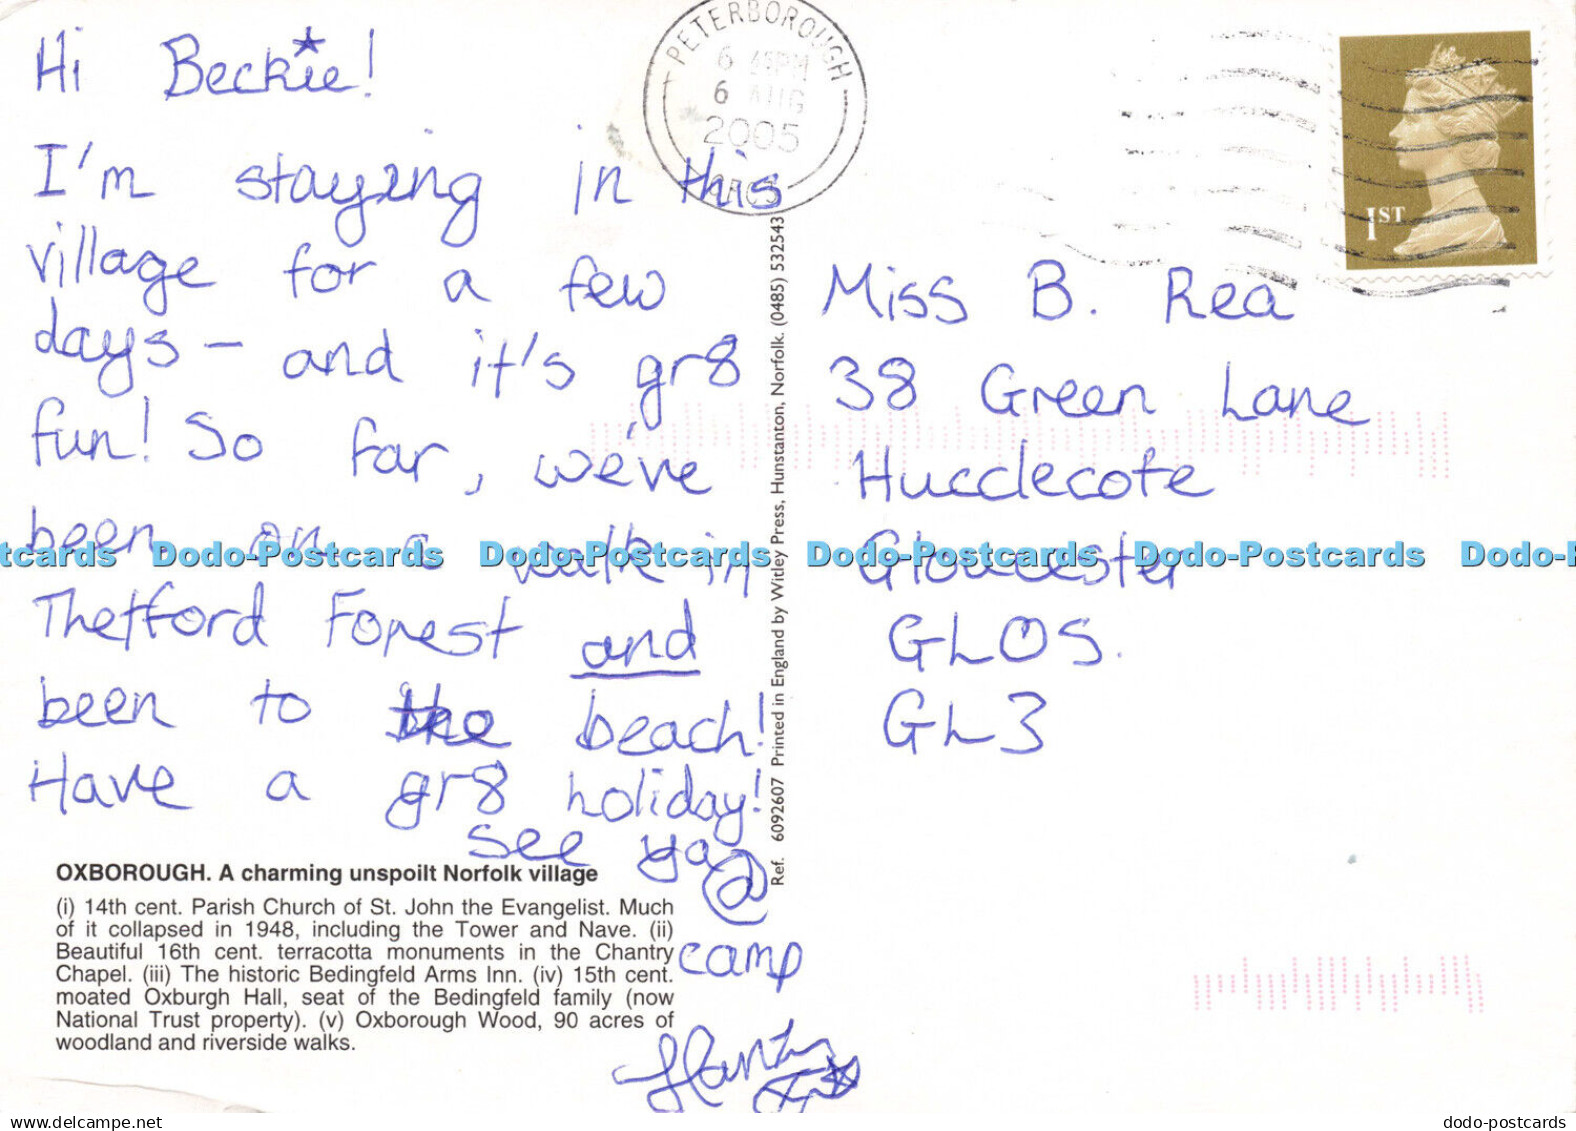 Hi Beckie!
I'm staying in this
village for a few
days - and it's gr8
fun! So far, we've
been on a walk in
Thetford Forest and
been to the beach!
Have a gr8 holiday!
See ya @
camp
OXBOROUGH. A charming unspoilt Norfolk village
(i) 14th cent. Parish Church of St. John the Evangelist. Much
of it collapsed in 1948, including the Tower and Nave. (ii)
Beautiful 16th cent. terracotta monuments in the Chantry
Chapel. (iii) The historic Bedingfeld Arms Inn. (iv) 15th cent.
moated Oxburgh Hall, seat of the Bedingfeld family (now
National Trust property). (v) Oxborough Wood, 90 acres of
woodland and riverside walks.
Ref. 6092607 Printed in England by Witley Press, Hunstanton, Norfolk. (0485) 532543
PETERBOROUGH
6 45PM
6 AUG
2005
1ST
Miss B. Rea
38 Green Lane
Hucclecote
Gloucester
GLOS.
GL3
tcards Dodo-Postcards Dodo-Postcards Dodo-Postcards Dodo-Postcards Dodo-P
delcampe.net
dodo-postcards